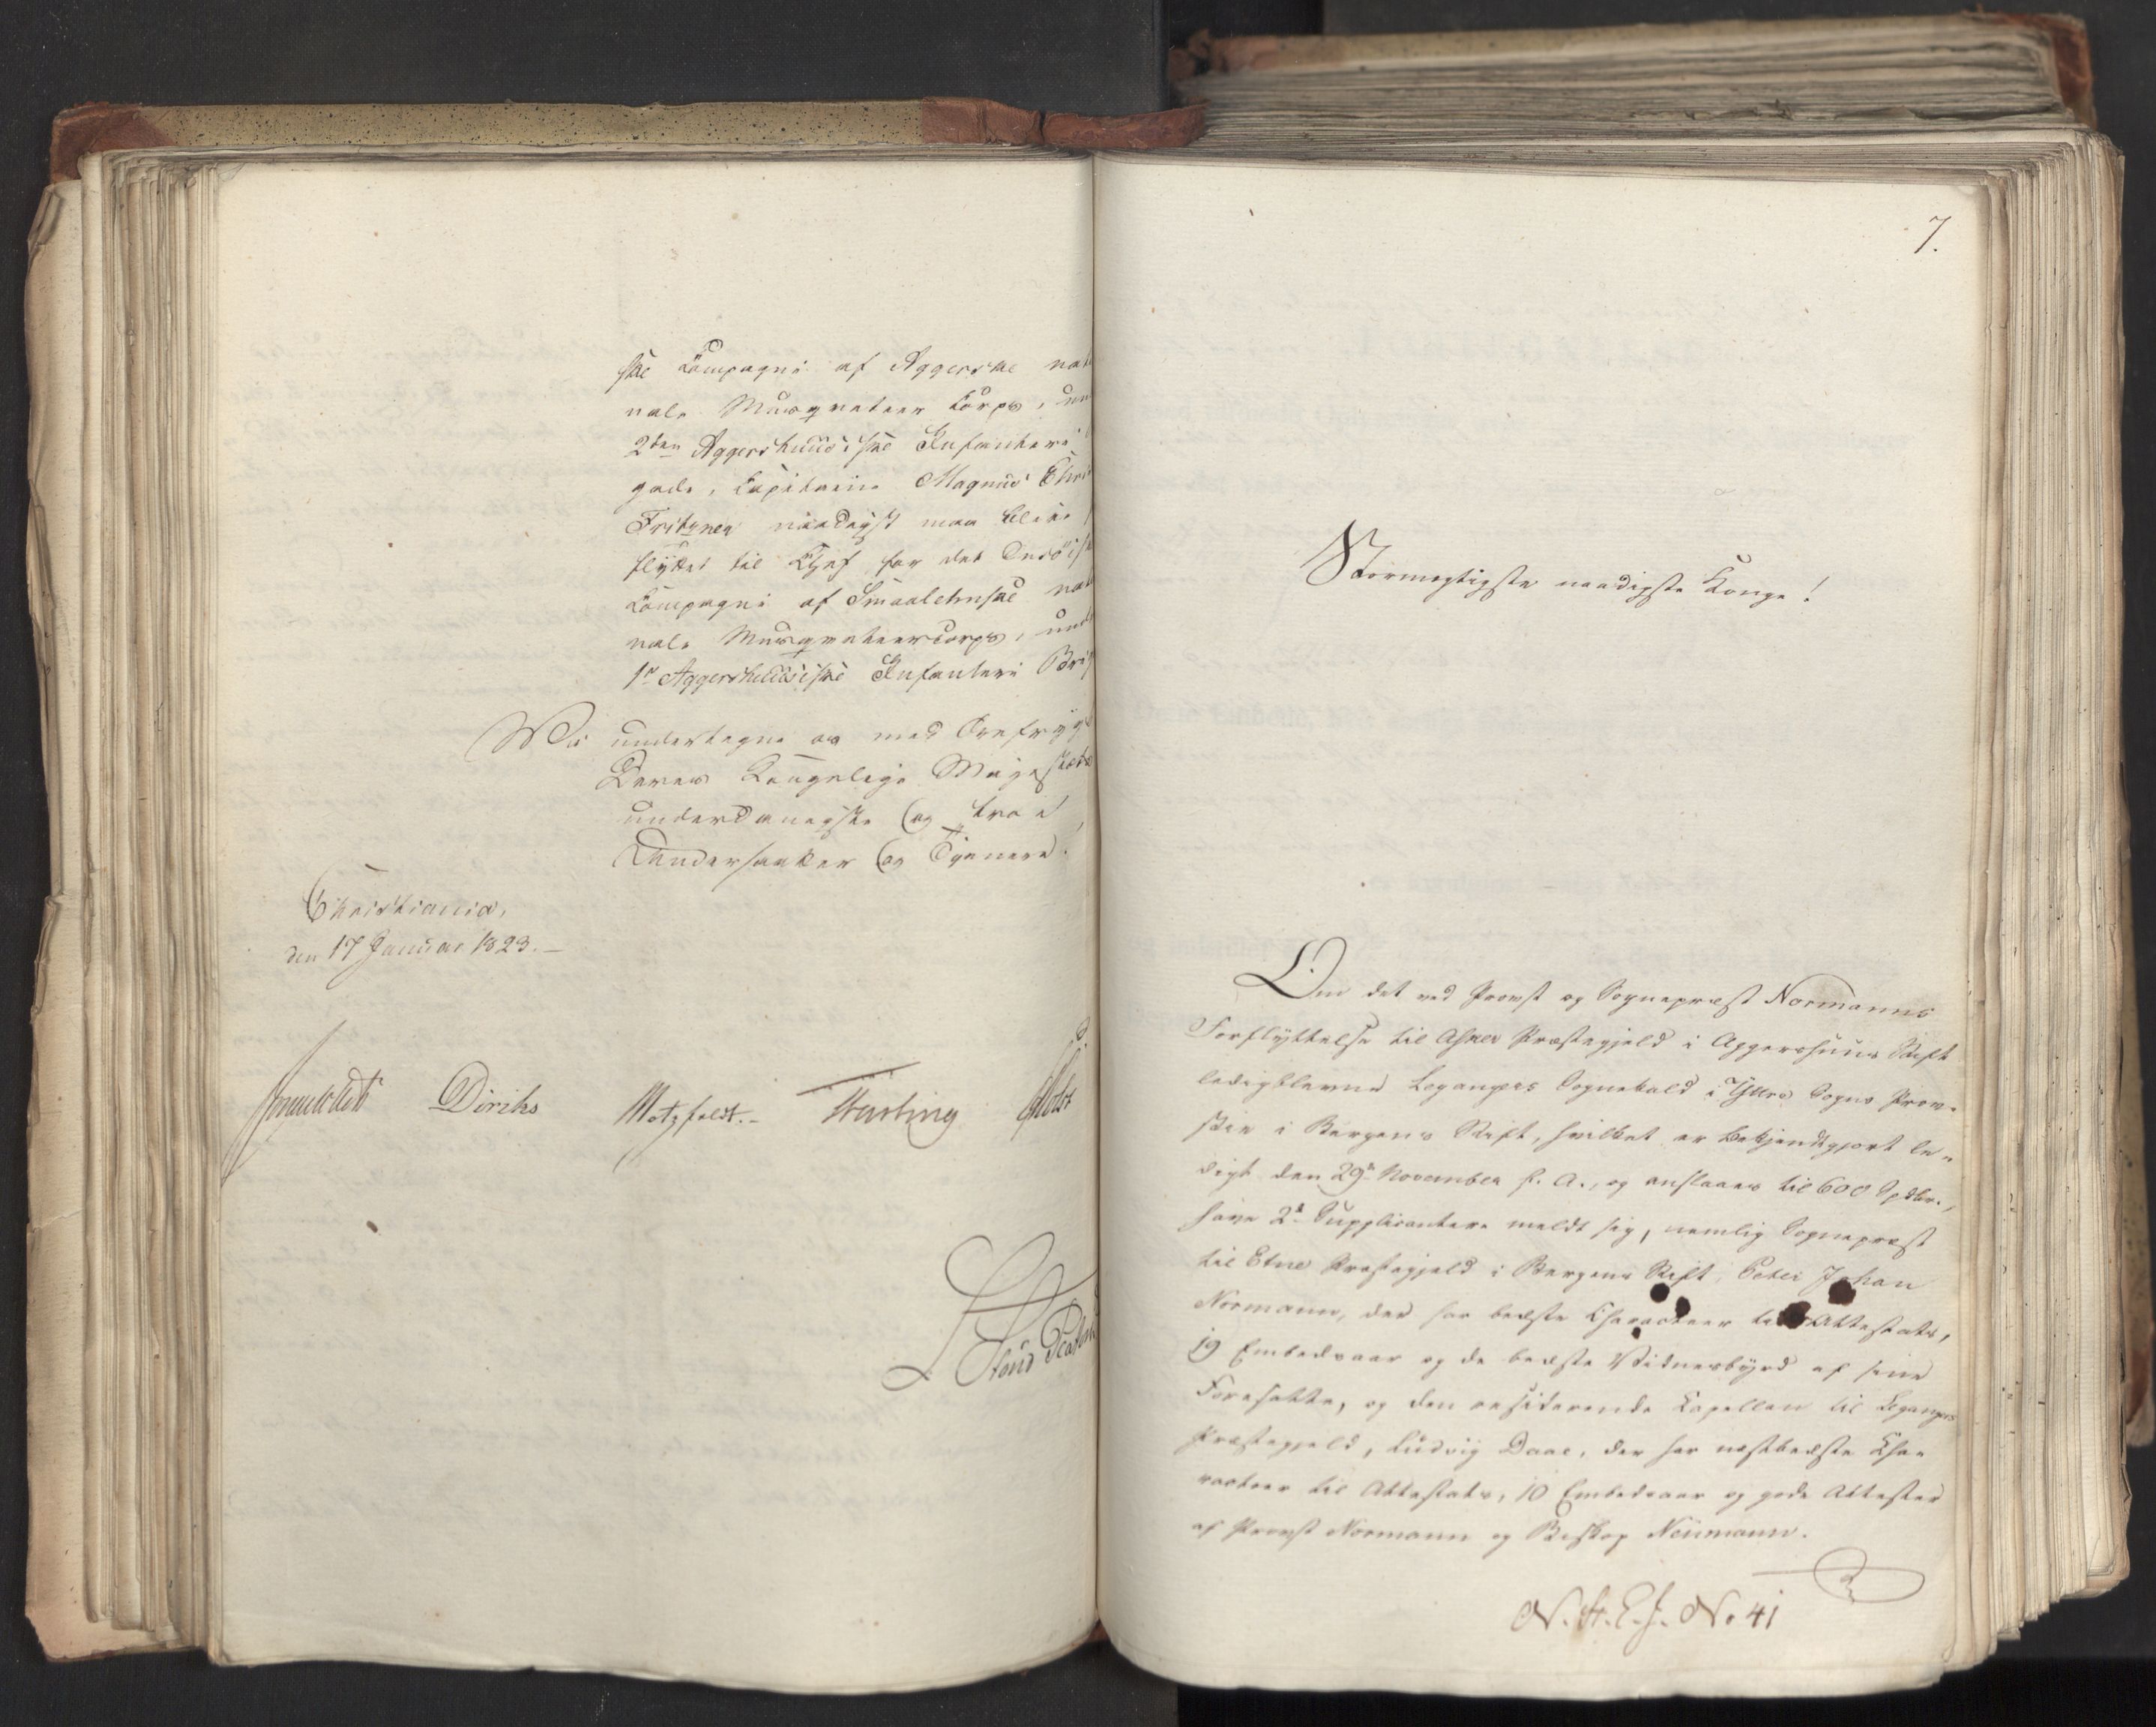 ske Compagni af Aggerske nati
nale Musqueteer Corps, un
2den Aggershuusiske Infanteri
gade, Capitaine Magnus Chri
Fritzner naadigst maa blive
flyttet til Chef for det Onsöiske
Compagni af Smaalehnske nati
nale Musqueteercorps, und
1st Aggershuusiske Infanteri Brig
Vi undertegne os med Ærefrygt
Deres Kongelige Majestæts
underdanigste og troe
Undersaatter og Tjenere.
Christiania,
den 17 Januar 1823.
Sommerhielm Diriks Motzfeldt. Fasting Holst
7.
Stormægtigste naadigste Konge!
Om det ved Provst og Sognepræst Normanns
Forflyttelse til Asker Præstegjeld i Aggershuus Stift
ledigblevne Leganger Sognekald i Yttre Sogns Prov-
stie i Bergens Stift, hvilket er bekjendtgjort le-
digt den 29de November f. A., og anslaaes til 600 Spdlr.,
have 2de Supplicantere meldt sig, nemlig Sognepræst
til Etne Præstegjeld i Bergens Stift, Peter Johan
Normann, der har bedste Characteer til Attestats,
19 Embedsaar og de bedste Vidnesbyrd af sine
Foresatte, og den residerende Capellan til Leganger
Præstegjeld, Ludvig Daae, der har næstbedste Cha-
racteer til Attestats, 10 Embedsaar og gode Attester
af Provst Normann og Biskop Neumann.
N. St. E. J. No 41